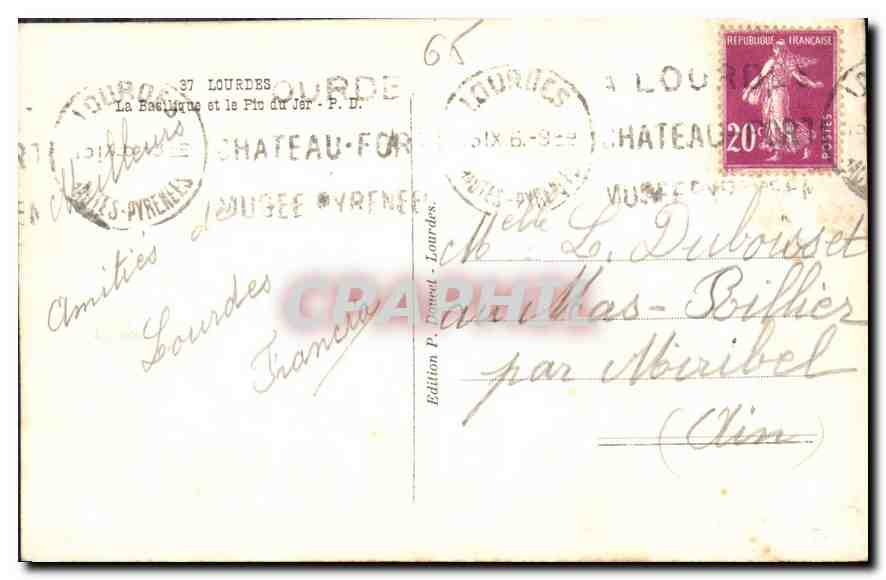 65
37 LOURDES
La Basilique et le Pic du Jer - P. D.
LOURDES
HAUTES-PYRENEES
LOURDE
CHATEAU-FOR
MUSEE PYRENEE
LOURDES
HAUTES-PYRENEES
A LOURD
CHATEAU-FORT
MUSEE
REPUBLIQUE FRANÇAISE
20c
POSTES
Meilleurs
Amitiés de
Lourdes
Edition P. Doucet - Lourdes.
CPAPHIL
Melle L. Dubousset
au Mas-Rillier
par Miribel
(Ain)